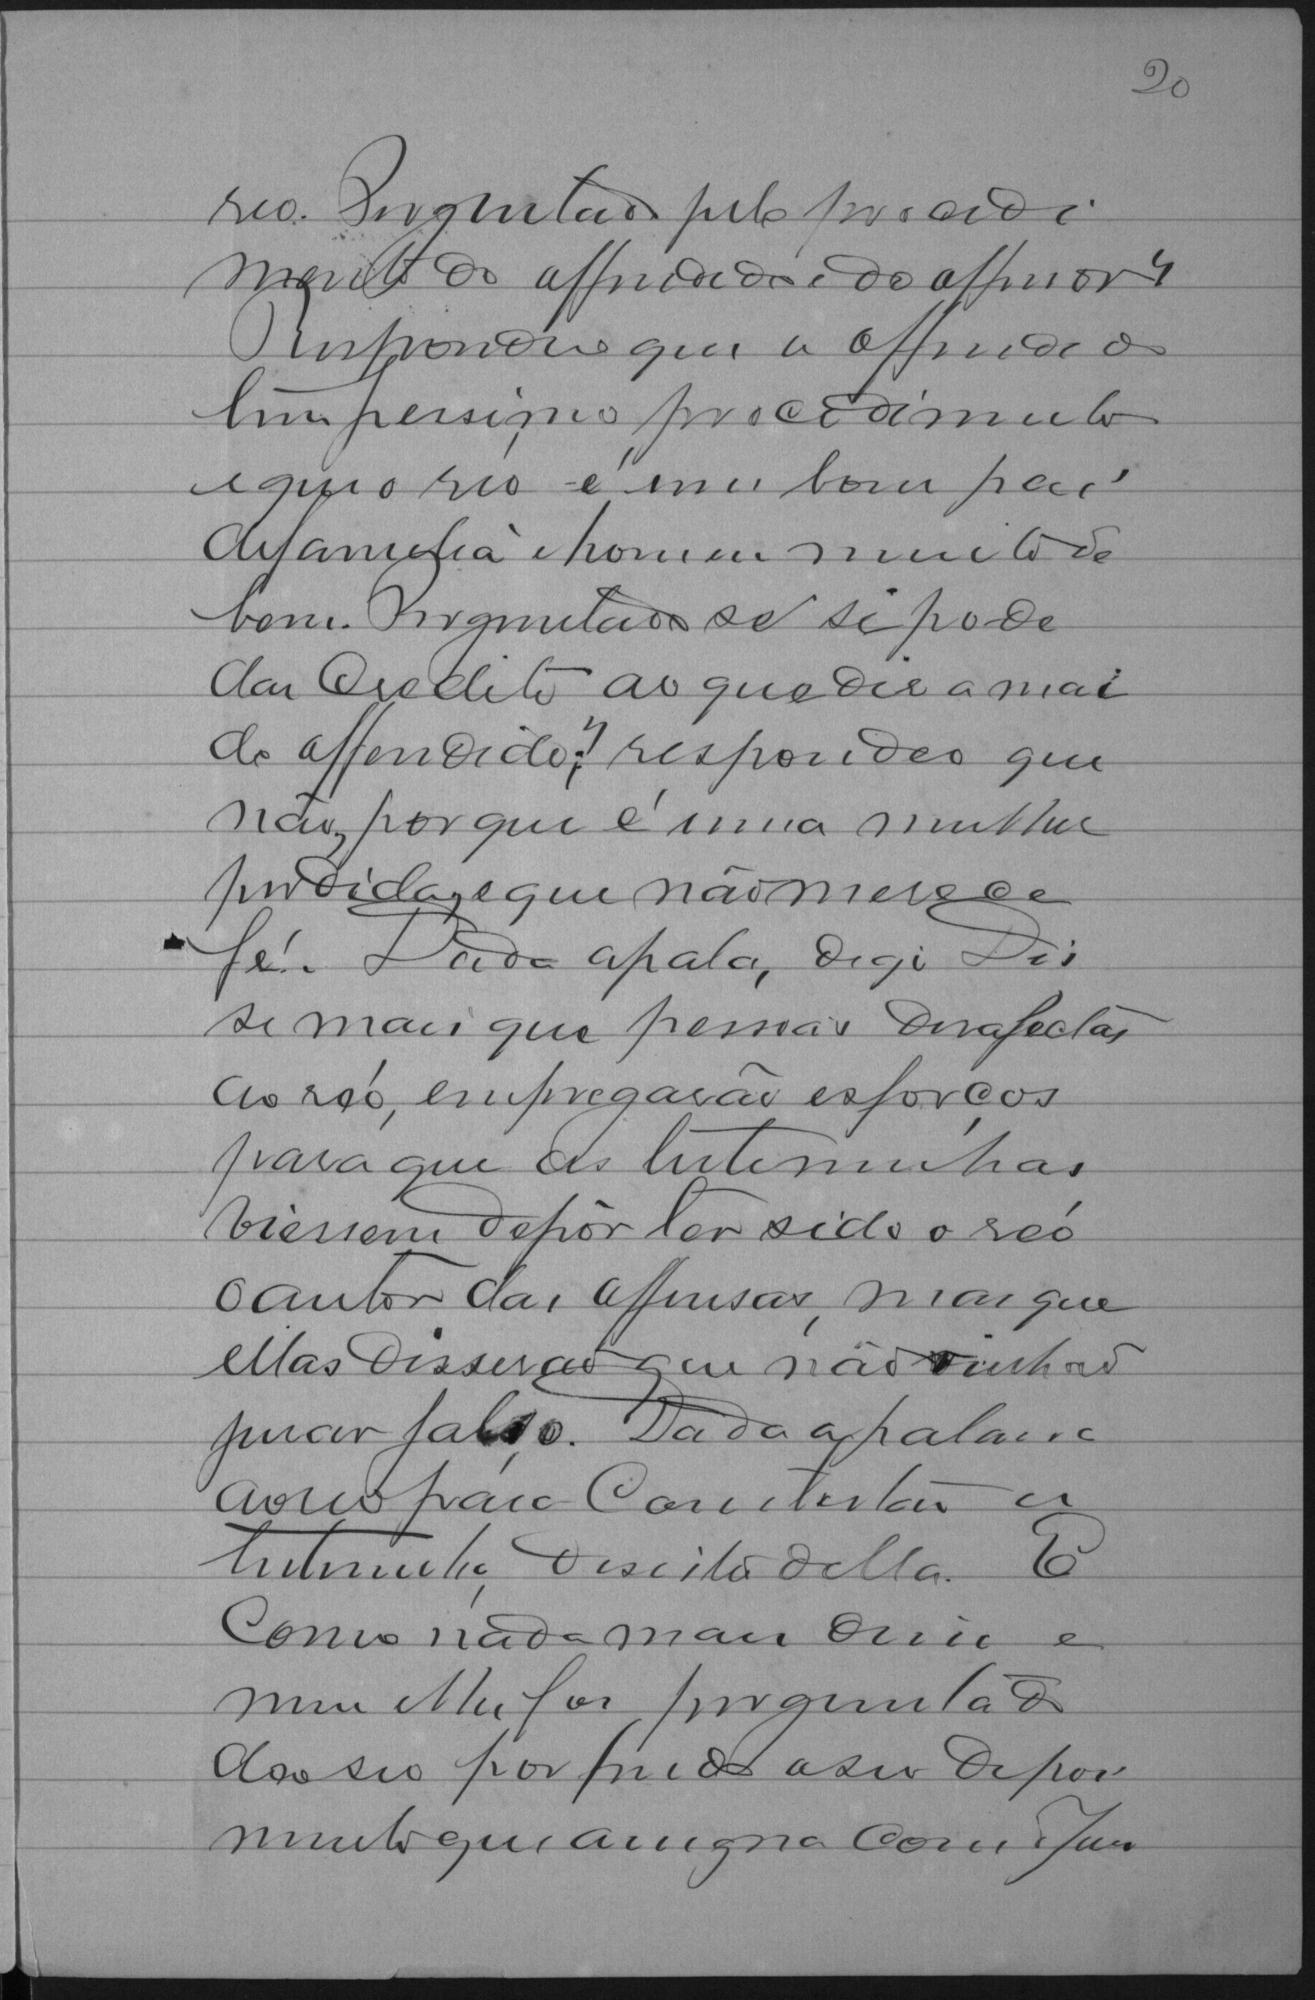 20
reo. Perguntado pelo procedi
mento do offendido e do offensor?
Respondeo que o offendido
tem pessimo procedimento
e que o reo é um bom pai
de familia e homem muito de
bem. Perguntado se si pode
dar Credito ao que diz a mai
do offendido? respondeo que
não, porque é uma mulher
perdida, e que não merece
fé. Dada a pala, digi Dis
se mais que pessoas desafectas
ao reó, empregarão esforços
para que as testemunhas
viessem depôr ter sido o reó
o autor das offensas, mas que
ellas disserão que não vinhão
jurar falso. Dada a palavra
ao reo para Contestar a
testemunha, desistio della. E
Como nada mais disse e
nem lhe foi perguntado
dou se por findo o seu depoi
mento que assigna com o Juiz